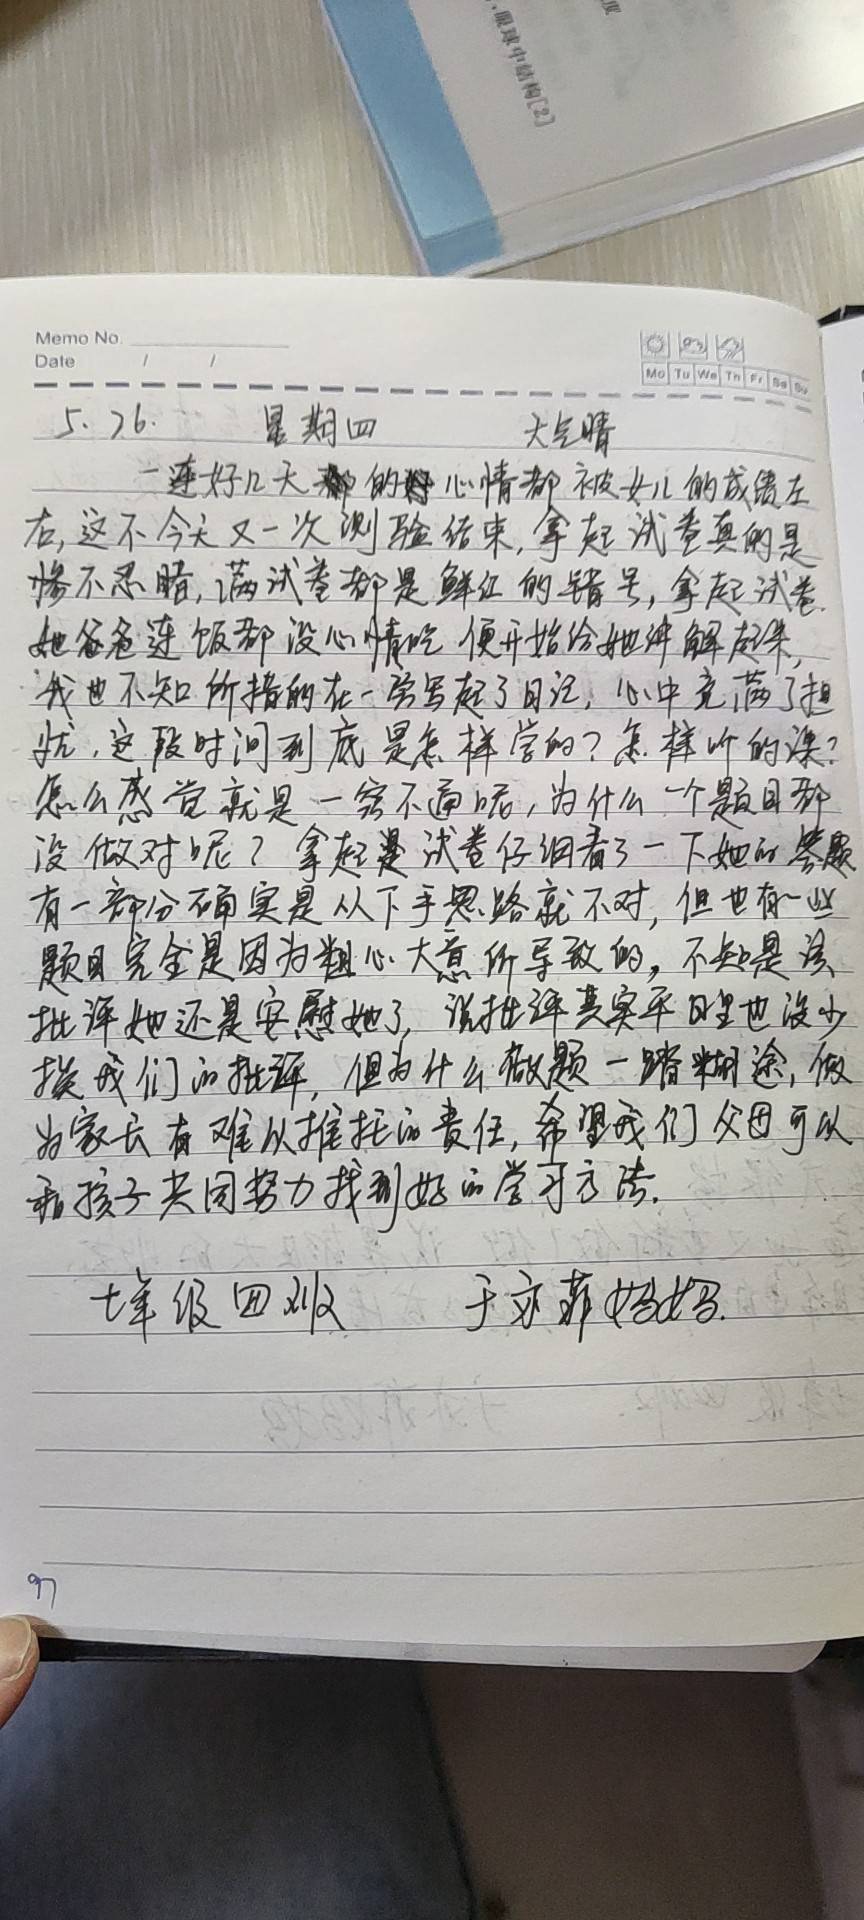 度
,眼球中结构[2]
Memo No.
Date / /
Mo Tu We Th Fr Sa Su
5.26. 星期四 天气晴
一连好几天的心情都被女儿的成绩左
右,这不今天又一次测验结束,拿起试卷真的是
惨不忍睹,满试卷都是鲜红的错号,拿起试卷
她爸爸连饭都没心情吃 便开始给她讲解起来,
我也不知所措的在一旁写起了日记,心中充满了担
忧,这段时间到底是怎样学的?怎样听的课?
怎么感觉就是一窍不通呢,为什么一个题目都
没做对呢?拿起试卷仔细看了一下她的答题
有一部分确实是从下手思路就不对,但也有一些
题目完全是因为粗心大意所导致的,不知是该
批评她还是安慰她了,说批评其实平日里也没少
挨我们的批评,但为什么做题一踏糊涂,做
为家长有难以推托的责任,希望我们父母可以
和孩子共同努力找到好的学习方法.
七年级四班 于亦菲妈妈.
97